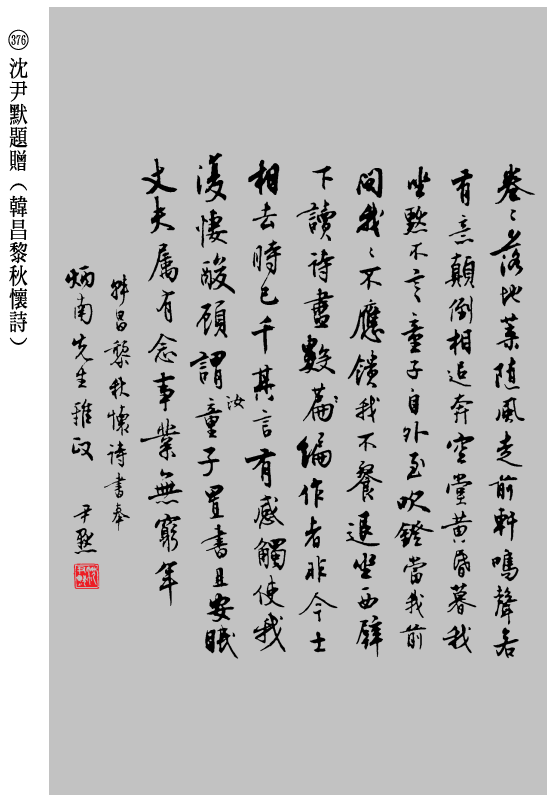 376 沈尹默題贈（韓昌黎秋懷詩）
卷〻落地葉随風走前軒鳴聲若
有意顛倒相追奔空堂黃昏暮我
坐默不言童子自外至吹鐙當我前
問我〻不應饋我不餐退坐西壁
下讀詩盡數篇編作者非今士
相去時已千其言有感觸使我
復悽酸顧謂汝童子置書且安眠
丈夫屬有念事業無窮年
韓昌黎秋懷詩書奉
炳南先生雅政 尹默